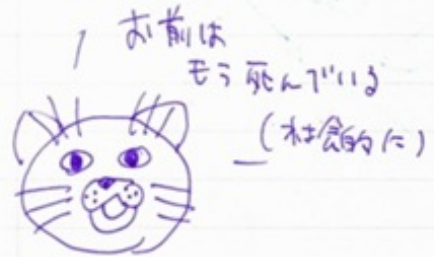 お前は
もう死んでいる
(社会的に)